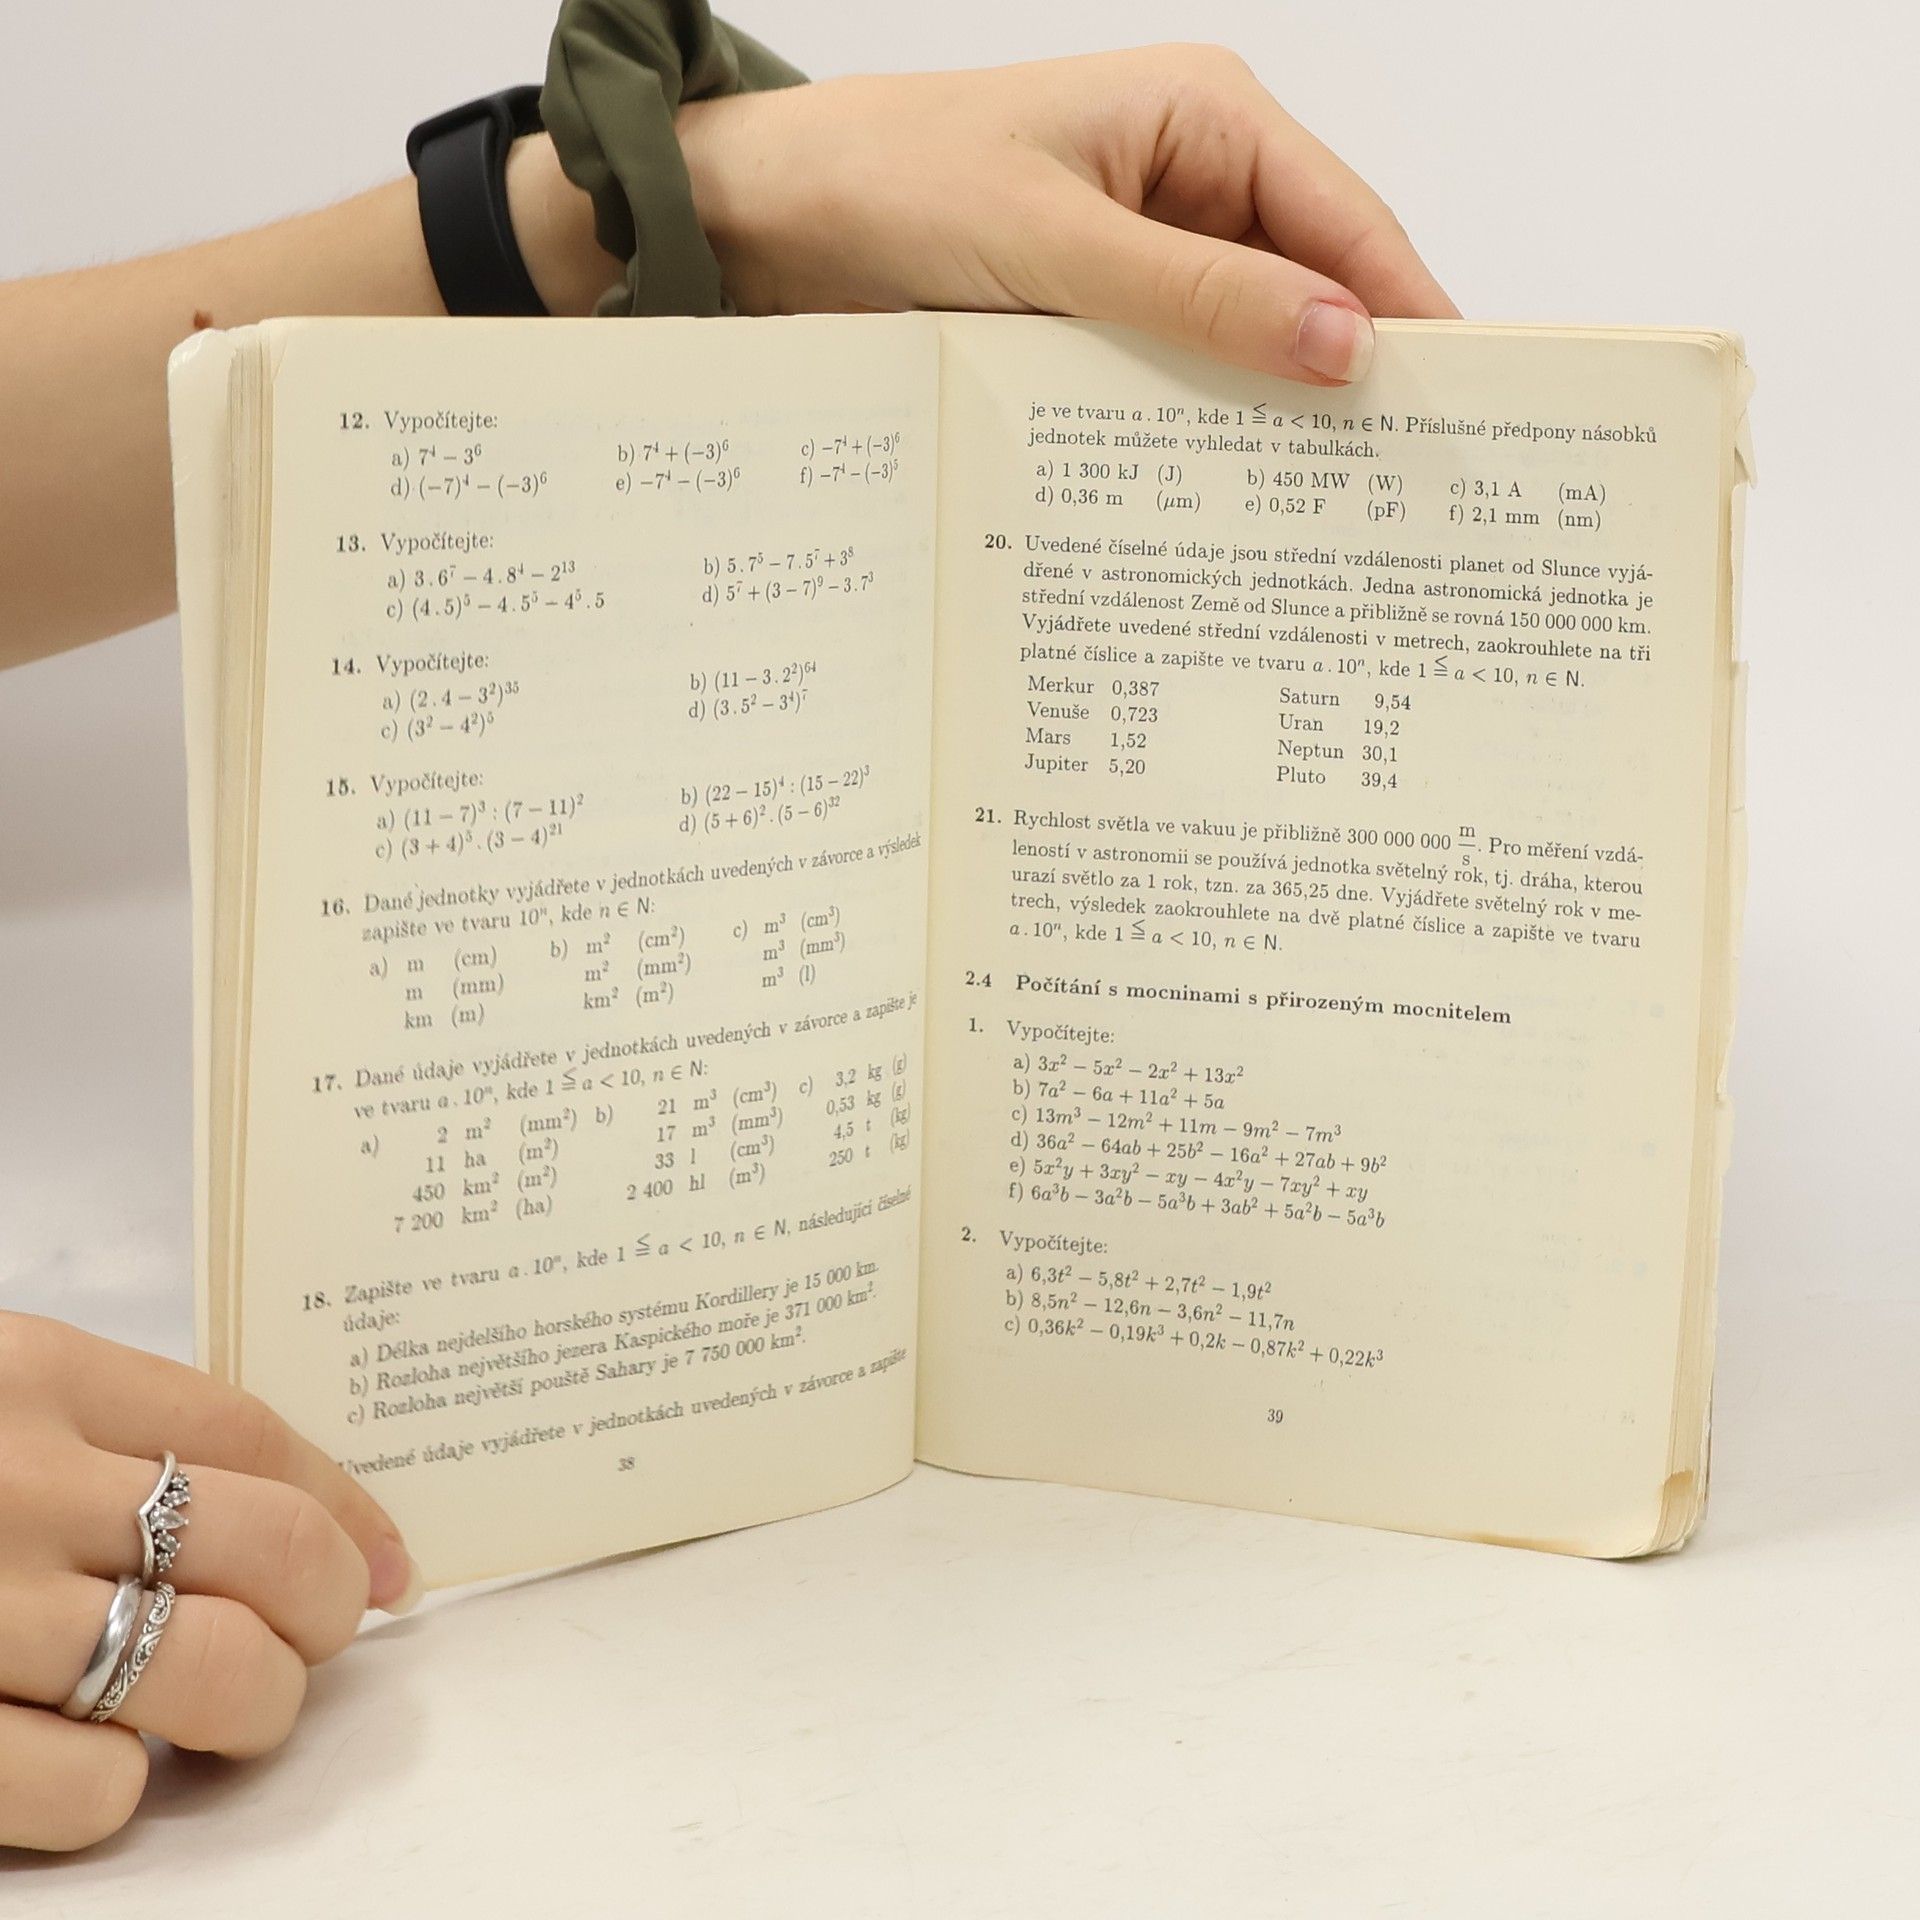 12. Vypočítejte:
a) 7⁴ − 3⁶ b) 7⁴ + (−3)⁶ c) −7⁴ + (−3)⁶
d) (−7)⁴ − (−3)⁶ e) −7⁴ − (−3)⁶ f) −7⁴ − (−3)⁵
13. Vypočítejte:
a) 3 . 6⁷ − 4 . 8⁴ − 2¹³ b) 5 . 7⁵ − 7 . 5⁷ + 3⁸
c) (4 . 5)⁵ − 4 . 5⁵ − 4⁵ . 5 d) 5⁷ + (3 − 7)⁹ − 3 . 7³
14. Vypočítejte:
a) (2 . 4 − 3²)³⁵ b) (11 − 3 . 2²)⁶⁴
c) (3² − 4²)⁵ d) (3 . 5² − 3⁴)⁷
15. Vypočítejte:
a) (11 − 7)³ : (7 − 11)² b) (22 − 15)⁴ : (15 − 22)³
c) (3 + 4)⁵ . (3 − 4)²¹ d) (5 + 6)² . (5 − 6)³²
16. Dané jednotky vyjádřete v jednotkách uvedených v závorce a výsledek
zapište ve tvaru 10ⁿ, kde n ∈ N:
a) m (cm) b) m² (cm²) c) m³ (cm³)
m (mm) m² (mm²) m³ (mm³)
km (m) km² (m²) m³ (l)
17. Dané údaje vyjádřete v jednotkách uvedených v závorce a zapište je
ve tvaru a . 10ⁿ, kde 1 ≦ a < 10, n ∈ N:
a) 2 m² (mm²) b) 21 m³ (cm³) c) 3,2 kg (g)
11 ha (m²) 17 m³ (mm³) 0,53 kg (g)
450 km² (m²) 33 l (cm³) 4,5 t (kg)
7 200 km² (ha) 2 400 hl (m³) 250 t (kg)
18. Zapište ve tvaru a . 10ⁿ, kde 1 ≦ a < 10, n ∈ N, následující číselné
údaje:
a) Délka nejdelšího horského systému Kordillery je 15 000 km.
b) Rozloha největšího jezera Kaspického moře je 371 000 km².
c) Rozloha největší pouště Sahary je 7 750 000 km².
Uvedené údaje vyjádřete v jednotkách uvedených v závorce a zapište
38
je ve tvaru a . 10ⁿ, kde 1 ≦ a < 10, n ∈ N. Příslušné předpony násobků
jednotek můžete vyhledat v tabulkách.
a) 1 300 kJ (J) b) 450 MW (W) c) 3,1 A (mA)
d) 0,36 m (μm) e) 0,52 F (pF) f) 2,1 mm (nm)
20. Uvedené číselné údaje jsou střední vzdálenosti planet od Slunce vyjá-
dřené v astronomických jednotkách. Jedna astronomická jednotka je
střední vzdálenost Země od Slunce a přibližně se rovná 150 000 000 km.
Vyjádřete uvedené střední vzdálenosti v metrech, zaokrouhlete na tři
platné číslice a zapište ve tvaru a . 10ⁿ, kde 1 ≦ a < 10, n ∈ N.
Merkur 0,387 Saturn 9,54
Venuše 0,723 Uran 19,2
Mars 1,52 Neptun 30,1
Jupiter 5,20 Pluto 39,4
21. Rychlost světla ve vakuu je přibližně 300 000 000 m/s. Pro měření vzdá-
leností v astronomii se používá jednotka světelný rok, tj. dráha, kterou
urazí světlo za 1 rok, tzn. za 365,25 dne. Vyjádřete světelný rok v me-
trech, výsledek zaokrouhlete na dvě platné číslice a zapište ve tvaru
a . 10ⁿ, kde 1 ≦ a < 10, n ∈ N.
2.4 Počítání s mocninami s přirozeným mocnitelem
1. Vypočítejte:
a) 3x² − 5x² − 2x² + 13x²
b) 7a² − 6a + 11a² + 5a
c) 13m³ − 12m² + 11m − 9m² − 7m³
d) 36a² − 64ab + 25b² − 16a² + 27ab + 9b²
e) 5x²y + 3xy² − xy − 4x²y − 7xy² + xy
f) 6a³b − 3a²b − 5a³b + 3ab² + 5a²b − 5a³b
2. Vypočítejte:
a) 6,3t² − 5,8t² + 2,7t² − 1,9t²
b) 8,5n² − 12,6n − 3,6n² − 11,7n
c) 0,36k² − 0,19k³ + 0,2k − 0,87k² + 0,22k³
39